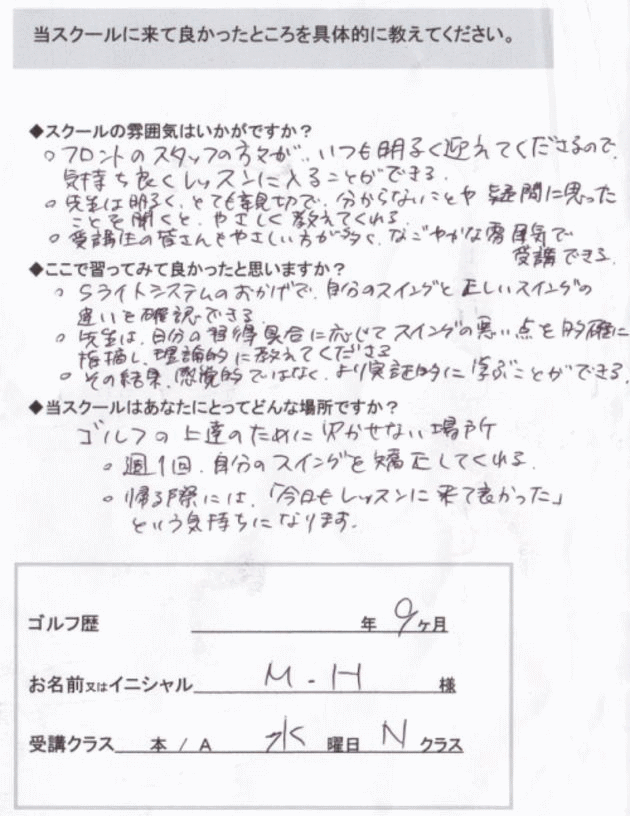 当スクールに来て良かったところを具体的に教えてください。
◆スクールの雰囲気はいかがですか？
○ フロントのスタッフの方々が、いつも明るく迎えてくださるので、
気持ち良くレッスンに入ることができる。
○ 先生は明るく、とても親切で、分からないことや疑問に思った
ことを聞くと、やさしく教えてくれる。
○ 受講生の皆さんもやさしい方が多く、なごやかな雰囲気で
受講できる。
◆ここで習ってみて良かったと思いますか？
○ Sライトシステムのおかげで、自分のスイングと正しいスイングの
違いを確認できる。
○ 先生は、自分の習得具合に応じてスイングの悪い点を的確に
指摘し、理論的に教えてくださる
○ その結果、感覚的ではなく、より実証的に学ぶことができる。
◆当スクールはあなたにとってどんな場所ですか？
ゴルフの上達のために欠かせない場所
○ 週1回、自分のスイングを矯正してくれる。
○ 帰る際には、「今日もレッスンに来て良かった」
という気持ちになります。
ゴルフ歴 年 9ヶ月
お名前又はイニシャル M・H 様
受講クラス 本 / A 水 曜日 N クラス